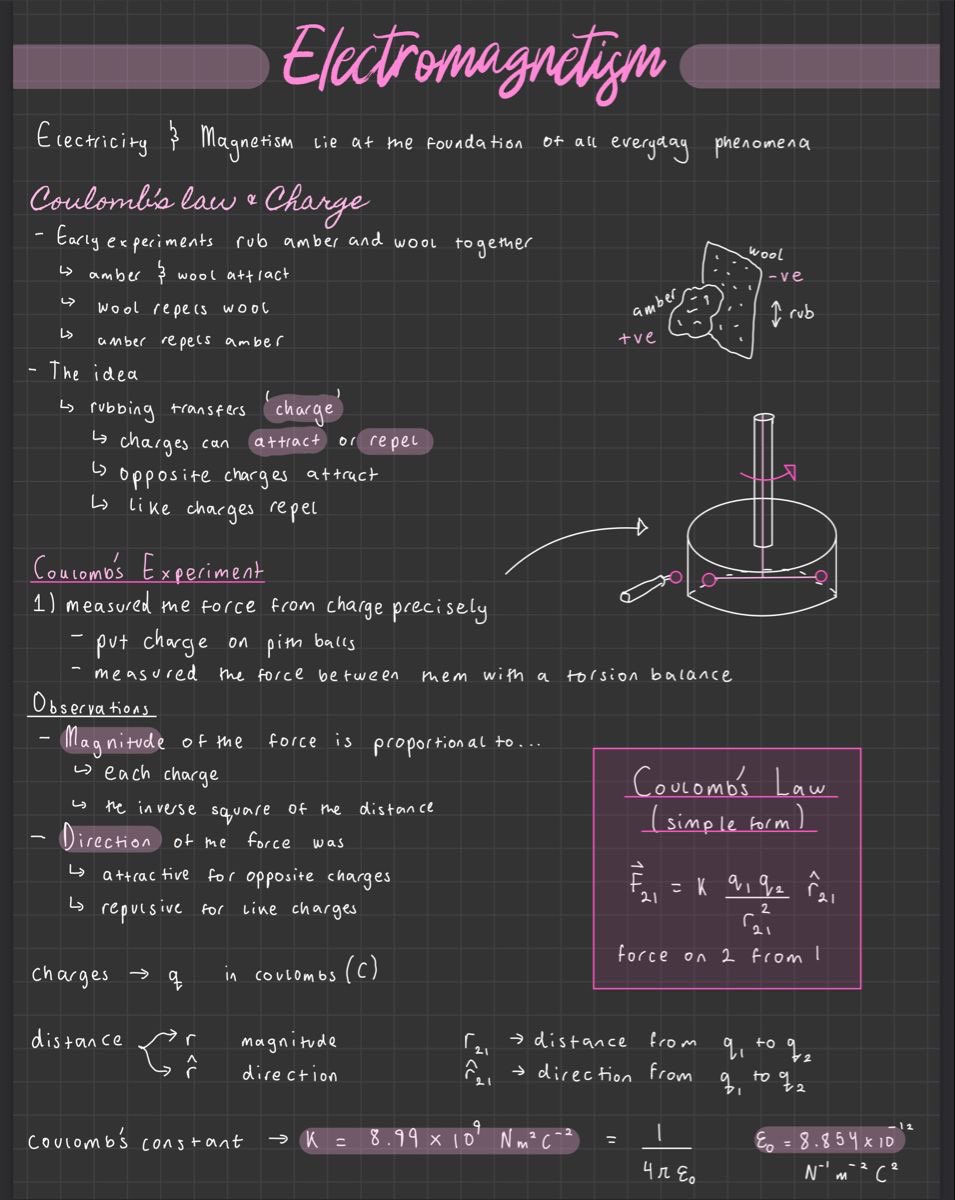 Electromagnetism
Electricity & Magnetism lie at the foundation of all everyday phenomena
Coulomb's law & Charge
- Early experiments rub amber and wool together
↳ amber & wool attract
↳ wool repels wool
↳ amber repels amber
wool
-ve
amber
+ve
↕ rub
- The idea
↳ rubbing transfers 'charge'
↳ charges can attract or repel
↳ opposite charges attract
↳ like charges repel
Coulomb's Experiment
1) measured the force from charge precisely
- put charge on pith balls
- measured the force between them with a torsion balance
Observations
- Magnitude of the force is proportional to...
↳ each charge
↳ the inverse square of the distance
- Direction of the force was
↳ attractive for opposite charges
↳ repulsive for like charges
Coulomb's Law
(simple form)
F⃗₂₁ = K q₁q₂ / r₂₁² r̂₂₁
force on 2 from 1
charges → q in coulombs (C)
distance → r magnitude
→ r̂ direction
r₂₁ → distance from q₁ to q₂
r̂₂₁ → direction from q₁ to q₂
coulomb's constant → K = 8.99 × 10⁹ Nm²C⁻² = 1 / 4πε₀
ε₀ = 8.854 × 10⁻¹²
N⁻¹ m⁻² C²